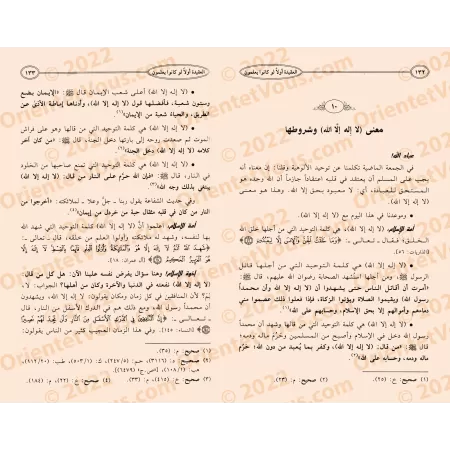 العقيدة أولاً لو كانوا يعلمون
١٣٢
١٠
معنى (لا إله إلَّا الله) وشروطها
عباد الله!
في الجمعة الماضية تكلمنا عن توحيد الألوهية وقلنا: إن معناه أنه
يجب على المسلم أن يعتقد في قلبه اعتقاداً جازماً أن الله وحده هو
المستحق للعبادة، أي: لا معبود بحق إلا الله. وهذا هو معنى
(لا إله إلا الله).
• وموعدنا في هذا اليوم مع (لا إله إلا الله).
أمة الإسلام! (لا إله إلا الله) هي كلمة التوحيد التي من أجلها خلق الله
الخلق، فقال تعالى: ﴿وَمَا خَلَقْتُ الْجِنَّ وَالْإِنسَ إِلَّا لِيَعْبُدُونِ ۝﴾
[الذاريات: ٥٦].
• (لا إله إلا الله) هي كلمة التوحيد التي من أجلها قاتل
الرسول ﷺ، ومن أجلها استُشهد الصحابة رضوان الله عليهم، قال ﷺ:
"أمرت أن أقاتل الناس حتى يشهدوا أن لا إله إلا الله وأن محمداً
رسول الله، ويقيموا الصلاة ويؤتوا الزكاة، فإذا فعلوا ذلك عصموا مني
دماءهم وأموالهم إلا بحق الإسلام، وحسابهم على الله"(١).
• (لا إله إلا الله) هي كلمة التوحيد التي من قالها وشهد أن محمداً
رسول الله دخل في الإسلام وأصبح من المسلمين وحَرُم ماله ودمه،
قال ﷺ: "من قال: (لا إله إلا الله)، وكفر بما يُعبد من دون الله؛ حَرُمَ
ماله ودمه، وحسابه على الله"(٢).
(١) صحيح: خ: (٢٥)، م: (٢٢). (٢) صحيح: م: (٢٣).
العقيدة أولاً لو كانوا يعلمون
١٣٣
• (لا إله إلا الله) أعلى شعب الإيمان قال ﷺ: "الإيمان بضع
وستون شعبة، فأفضلها قول (لا إله إلا الله)، وأدناها إماطة الأذى عن
الطريق، والحياة شعبة من الإيمان"(١).
• (لا إله إلا الله) هي كلمة التوحيد التي من قالها وهو على فراش
الموت ثم صعدت روحه إلى بارئها دخل الجنة؛ قال ﷺ: "من كان آخر
كلامه (لا إله إلا الله) دخل الجنة"(٢).
• (لا إله إلا الله) هي كلمة التوحيد التي تمنع صاحبها من الخلود
في النار، قال ﷺ: "فإن الله حَرَّم على النار من قال: (لا إله إلا الله)
يبتغي بذلك وجه الله"(٣).
وفي حديث الشفاعة يقول ربنا ـ جلَّ وعلا ـ لملائكته: "أخرجوا من
النار من كان في قلبه مثقال حبة من خردل من إيمان"(٤).
أمة الإسلام! اعلموا أنَّ (لا إله إلا الله) هي كلمة التوحيد التي شهد الله
بها لنفسه، وشهد له ملائكته وأولوا العلم من خلقه، قال ـ تعالى ـ:
﴿شَهِدَ اللَّهُ أَنَّهُ لَا إِلَهَ إِلَّا هُوَ وَالْمَلَائِكَةُ وَأُولُو الْعِلْمِ قَائِمًا بِالْقِسْطِ لَا إِلَهَ إِلَّا
هُوَ الْعَزِيزُ الْحَكِيمُ ۝﴾ [آل عمران: ١٨].
إخوة الإسلام! وهنا سؤال يفرض نفسه علينا الآن: هل كل من قال:
(لا إله إلا الله) تنفعه في الدنيا والآخرة وكان من أهلها؟ الجواب: لا،
لِمَ؟ لأن المنافقين في كل زمان ومكان يقولون: لا إله إلا الله، ويشهدون
أن محمداً رسول الله، ومع ذلك هم في الدرك الأسفل من النار، قال
تعالى: ﴿إِنَّ الْمُنَافِقِينَ فِي الدَّرْكِ الْأَسْفَلِ مِنَ النَّارِ وَلَن تَجِدَ لَهُمْ نَصِيرًا ۝﴾
[النساء: ١٤٥]. وفي هذا الزمان العجيب كثير من الناس يقولون:
(١) صحيح: م: (٣٥).
(٢) صحيح: د: (٣١١٦)،
(٤) صحيح: خ: (٢٢)، م: (١٨٤).
© 2022
OrientetVous.com